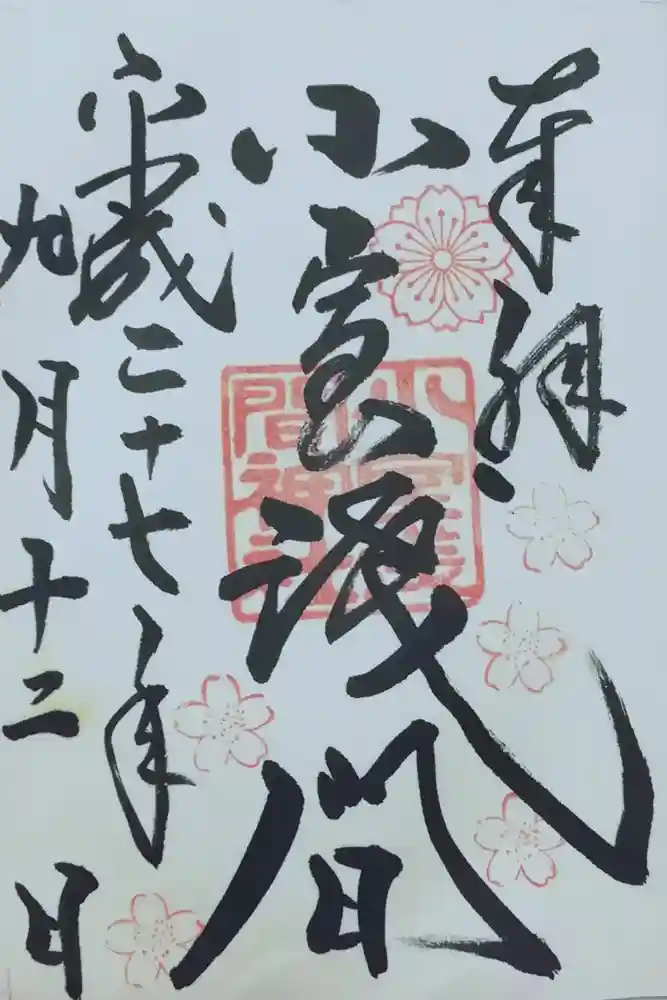 奉拝
小室浅間
小室浅
間神社
平成二十七年
九月十二日